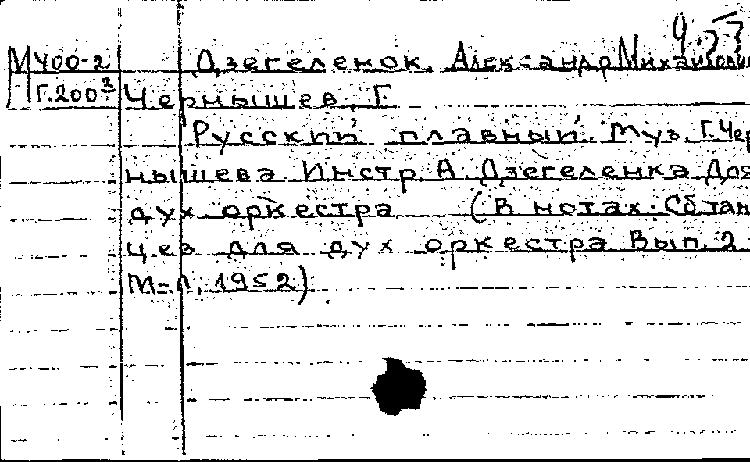 М400-2 Дзегеленок, Александр Михайлович
Г.200³ Чернышев, Г.
Русский плавный. Муз. Г. Чер
нышева. Инстр. А. Дзегеленка. Для
дух. оркестра (В нотах: Сб. тан
цев для дух. оркестра. Вып. 2
М-Л, 1952)